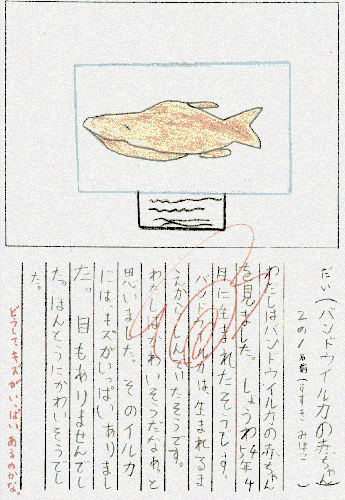 だい(バンドウイルカの赤ちゃん)
2の1 名前(すずき みほこ)
わたしはバンドウイルカの赤ちゃん
を見ました。しょうわ54年4
月に生まれたそうです。
バンドウイルカは、生まれるま
えからしんでいたそうです。
わたしはかわいそうだなあと
思いました。そのイルカ
にはキズがいっぱいありまし
た。目もありませんでし
た。ほんとうにかわいそうでし
た。
どうしてキズがいっぱいあるのかな。